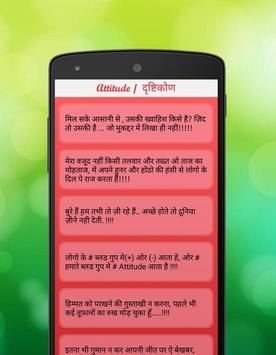 Attitude / दृष्टिकोण
मिल सके आसानी से , उसकी ख्वाहिश किसे है? ज़िद
तो उसकी है ... जो मुकद्दर में लिखा ही नहीं!!!!!
मेरा वजूद नहीं किसी तलवार और तख़्त ओ ताज का
मोहताज, में अपने हुनर और होंठो की हंसी से लोगो के
दिल पे राज करता हैं!!!!
बुरे हैं हम तभी तो ज़ी रहे हैं.. अच्छे होते तो दुनिया
ज़ीने नही देती. !!!!
लोगो के # ब्लड गुप मे(+) ओर (-) आता है, ओर
हमारे ब्लड गुप मे # Attitude आता है !!!!
हिम्मत को परखने की गुस्ताखी न करना, पहले भी
कई तूफानों का रुख मोड़ चुका हूँ.....!!!!
इतना भी गुमान न कर आपनी जीत पर ऐ बेखबर,